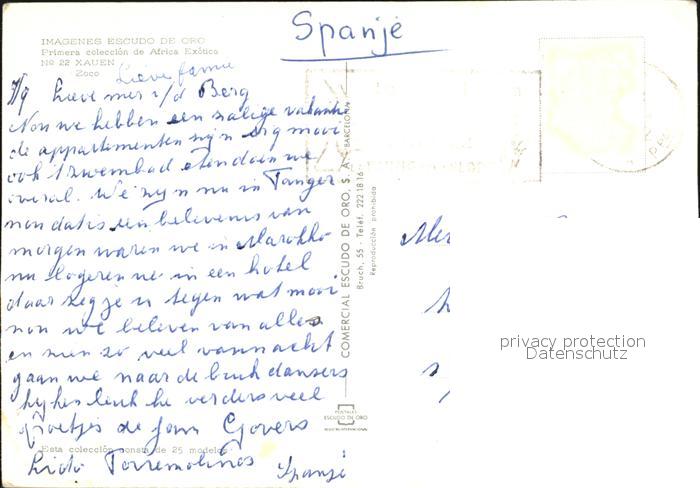 Spanje
IMAGENES ESCUDO DE ORO
Primera colección de Africa Exótica
Nº 22 XAUEN
Zoco
Lieve famie
Lieve mer v/d Berg
Nou we hebben een zalige vakantie
de appartementen zijn erg mooi
ook t zwembad eten doen we
overal. We zijn nu in Tanger
nou dat is een belevenis van
morgen waren we in Marokko
nu logeren we in een hotel
daar zeg je u tegen wat mooi
nou we beleven van alles
en zien zo veel vannacht
gaan we naar de buikdansers
kijken leuk he verders veel
groetjes de fam Govers
Lido Torremolinos Spanje
Esta colección consta de 25 modelos
COMERCIAL ESCUDO DE ORO, S. A. - BARCELONA
Bruch, 55 - Teléf. 222 18 16
Reproducción prohibida
POSTALES
ESCUDO DE ORO
Mer
privacy protection
Datenschutz